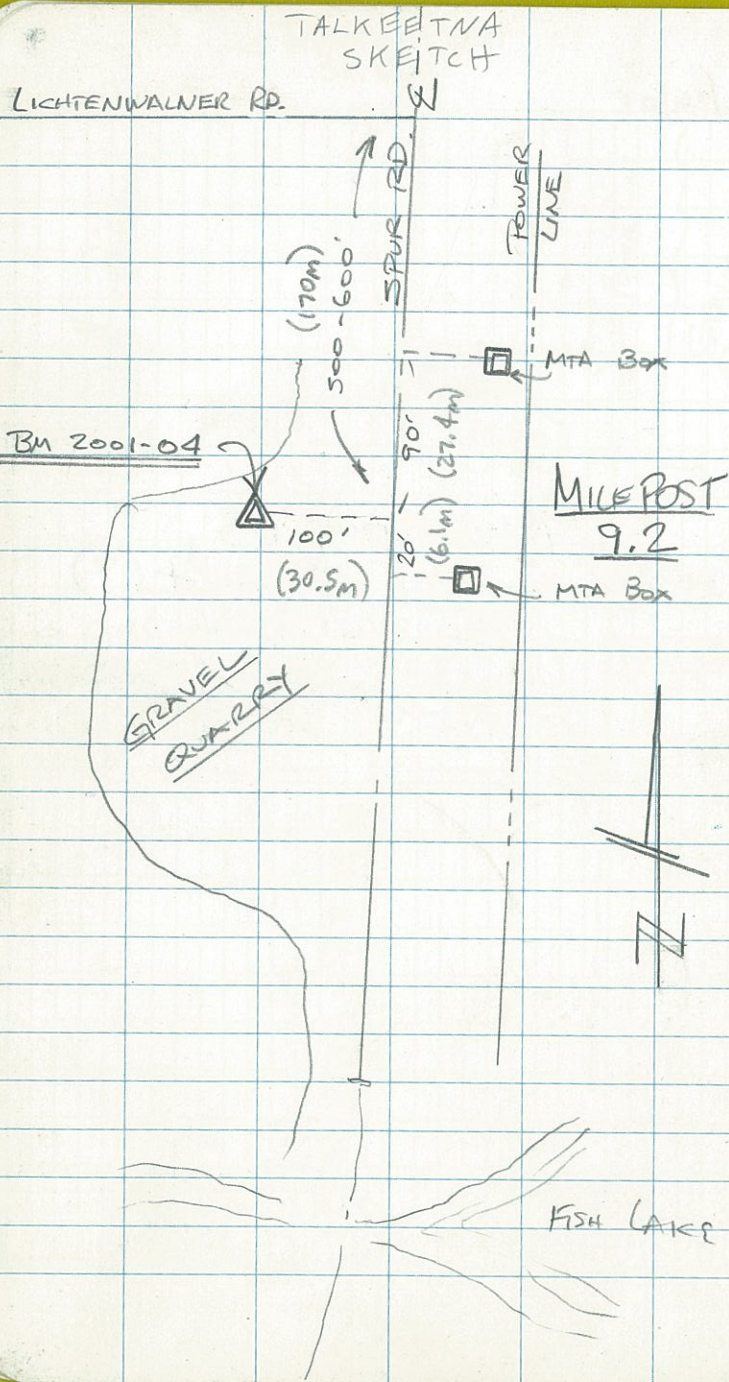 TALKEETNA
SKETCH
LICHTENWALNER RD.
℄
SPUR RD.
POWER
LINE
(170m)
500-600'
MTA Box
90'
(27.4m)
BM 2001-04
MILEPOST
9.2
100'
(30.5m)
20'
(6.1m)
MTA Box
GRAVEL
QUARRY
N
FISH LAKE